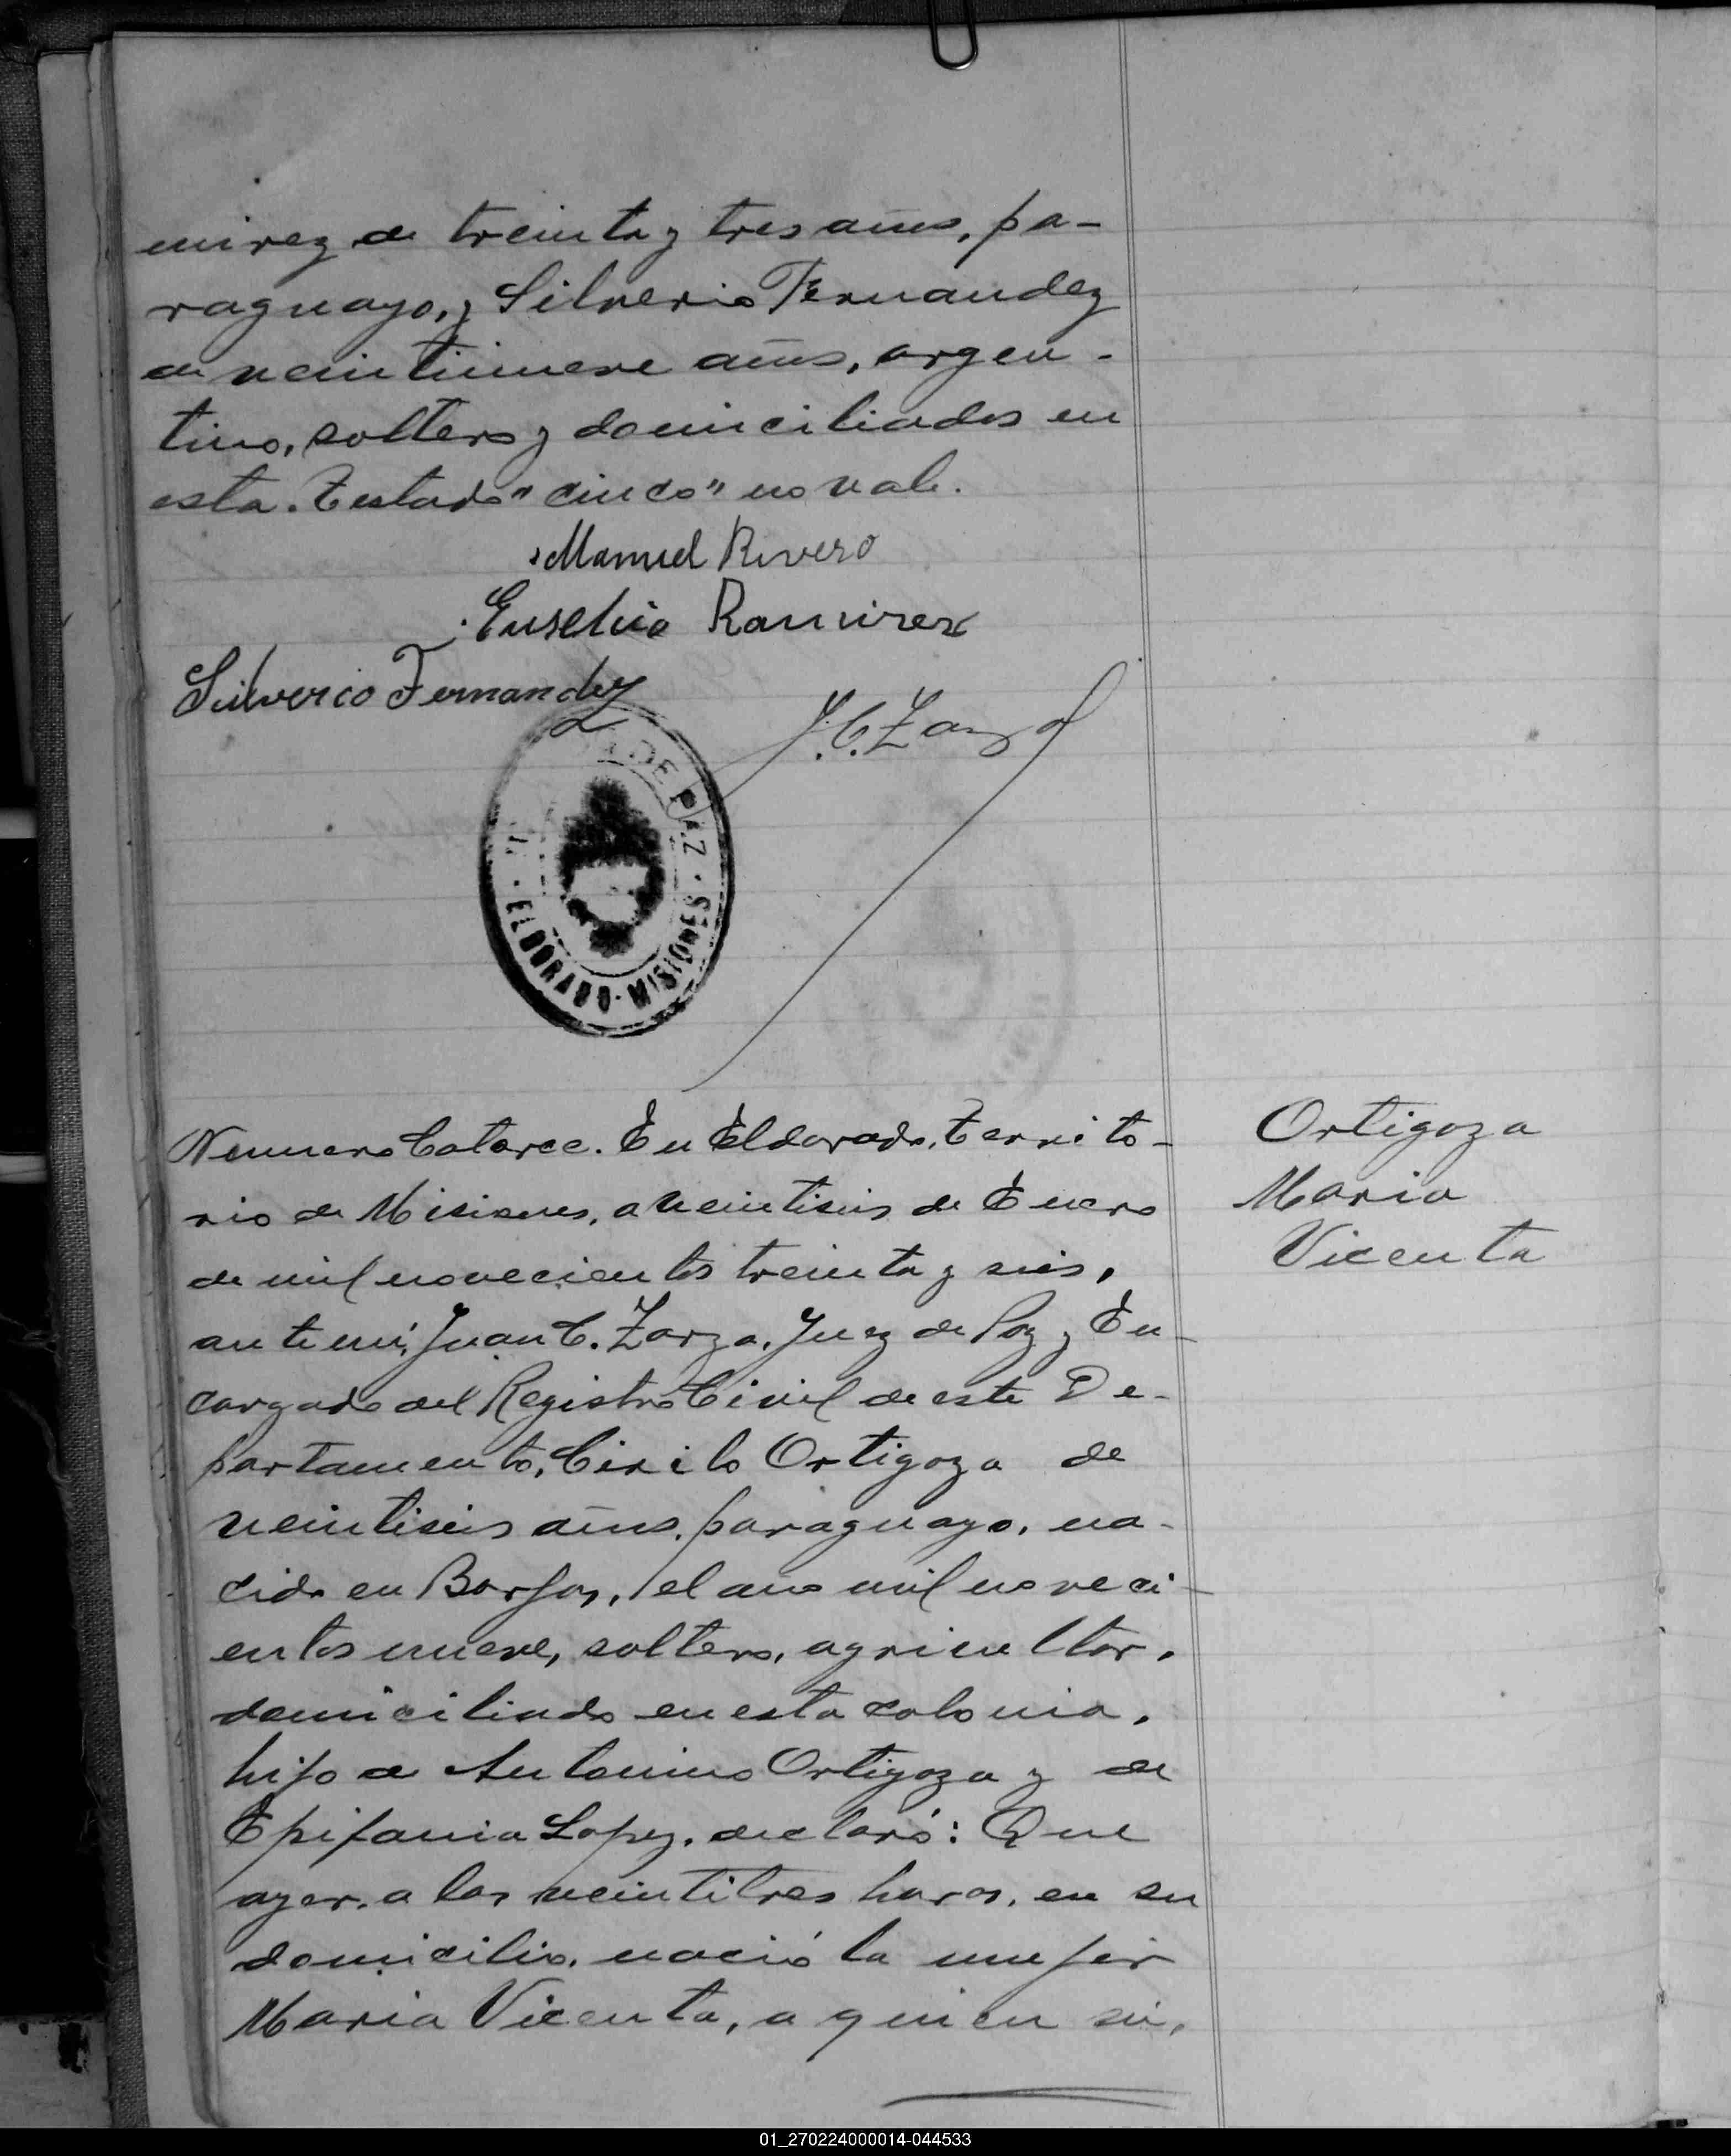 mirez de treinta y tres años, pa-
raguayo, y Silverio Fernandez
de veintinueve años, argen-
tino, solteros y domiciliados en
esta. Testado "cinco" no vale.
Manuel Rivero
Eusebio Ramirez
Silverio Fernandez
J.C. Zarza
DE PAZ
ELDORADO - MISIONES
Numero Catorce. En Eldorado, Territo-
rio de Misiones, a veintiseis de Enero
de mil novecientos treinta y seis,
ante mi, Juan C. Zarza, Juez de Paz y En-
cargado del Registro Civil de este De-
partamento, Cirilo Ortigoza de
veintiseis años, paraguayo, na-
cido en Borjas, el año mil noveci-
entos nueve, soltero, agricultor,
domiciliado en esta colonia,
hijo de Antonino Ortigoza y de
Epifania Lopez, declaró: Que
ayer, a las veintitres horas, en su
domicilio, nació la mujer
Maria Vicenta, a quien vi,
Ortigoza
Maria
Vicenta
01_270224000014-044533